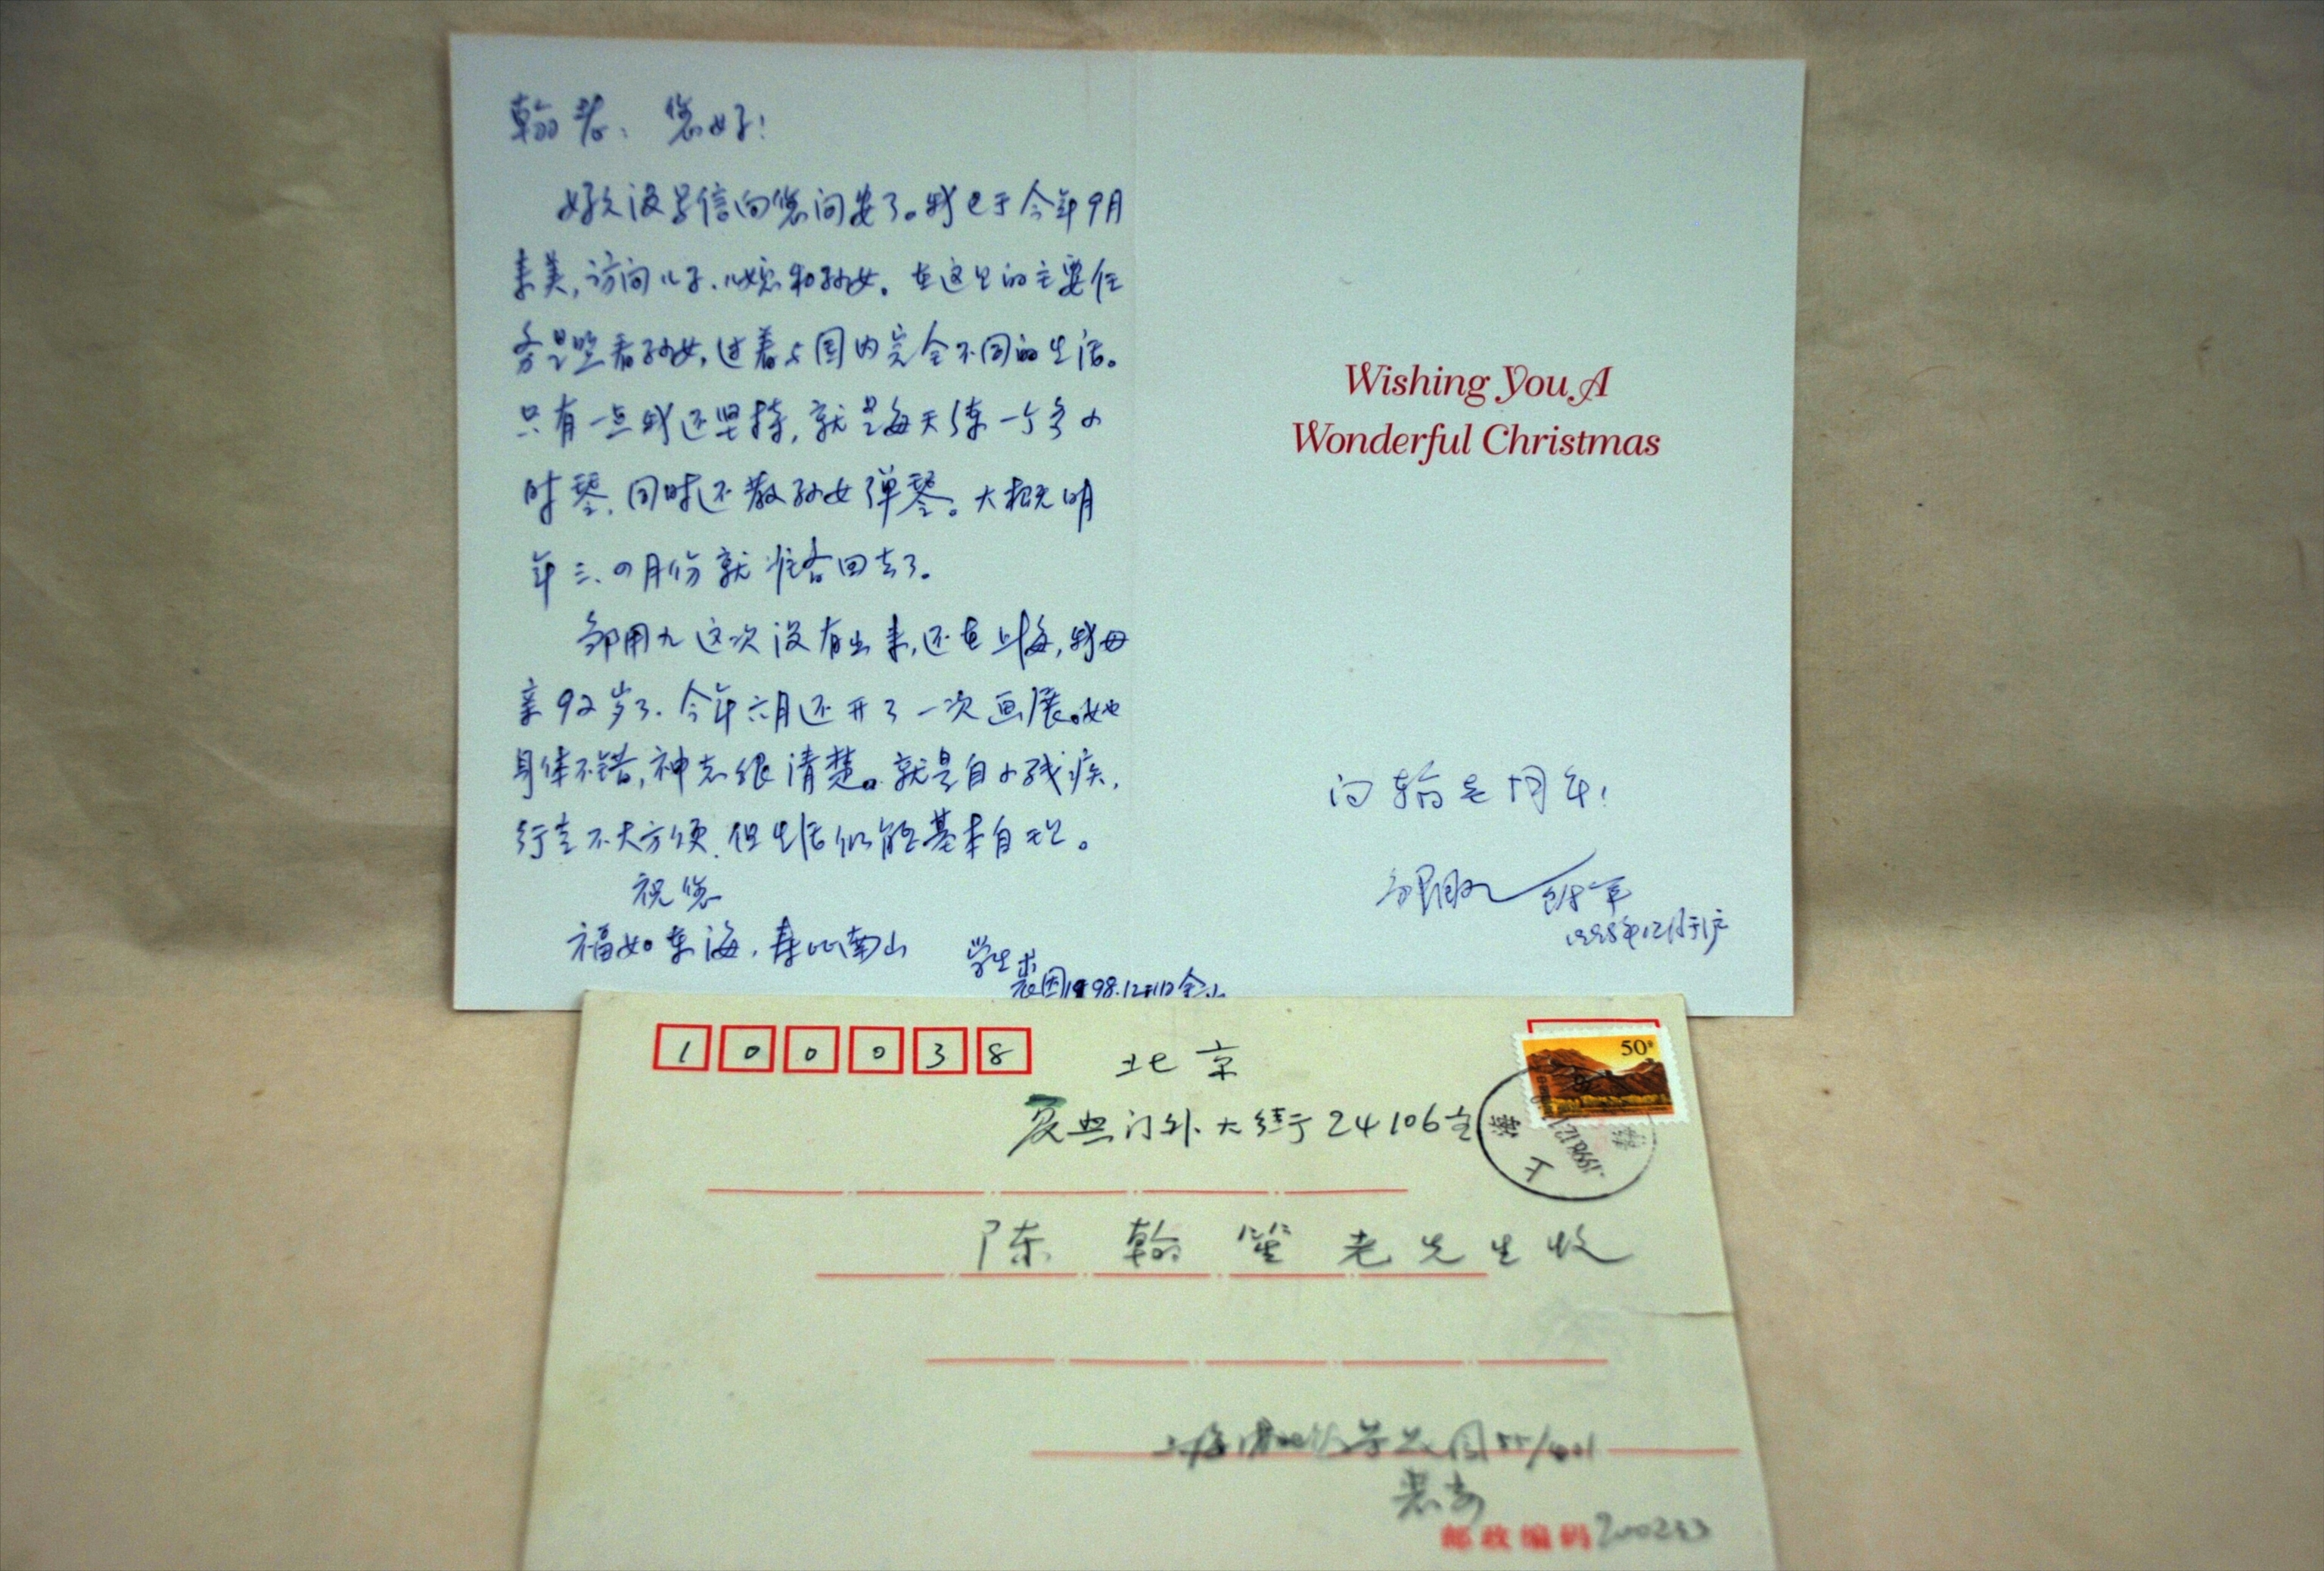 翰老：您好！
好久没写信向您问安了。我已于今年9月
来美，访问儿子、儿媳和孙女。在这里的主要任
务是照看孙女，过着与国内完全不同的生活。
只有一点我还坚持，就是每天练一个多小
时琴，同时还教孙女弹琴。大概明
年三、四月份就准备回去了。
邹用九这次没有出来，还在上海，我母
亲92岁了，今年六月还开了一次画展。她
身体不错，神志很清楚。就是自小残疾，
行走不大方便，但生活仍能基本自理。
祝您
福如东海，寿比南山
学生
裘因1998.12月11日
Wishing You A
Wonderful Christmas
问翰老周年！
1998年12月于沪
100038
北京
复兴门外大街24106室
50
陈翰笙老先生收
上海
裘寄
邮政编码200233